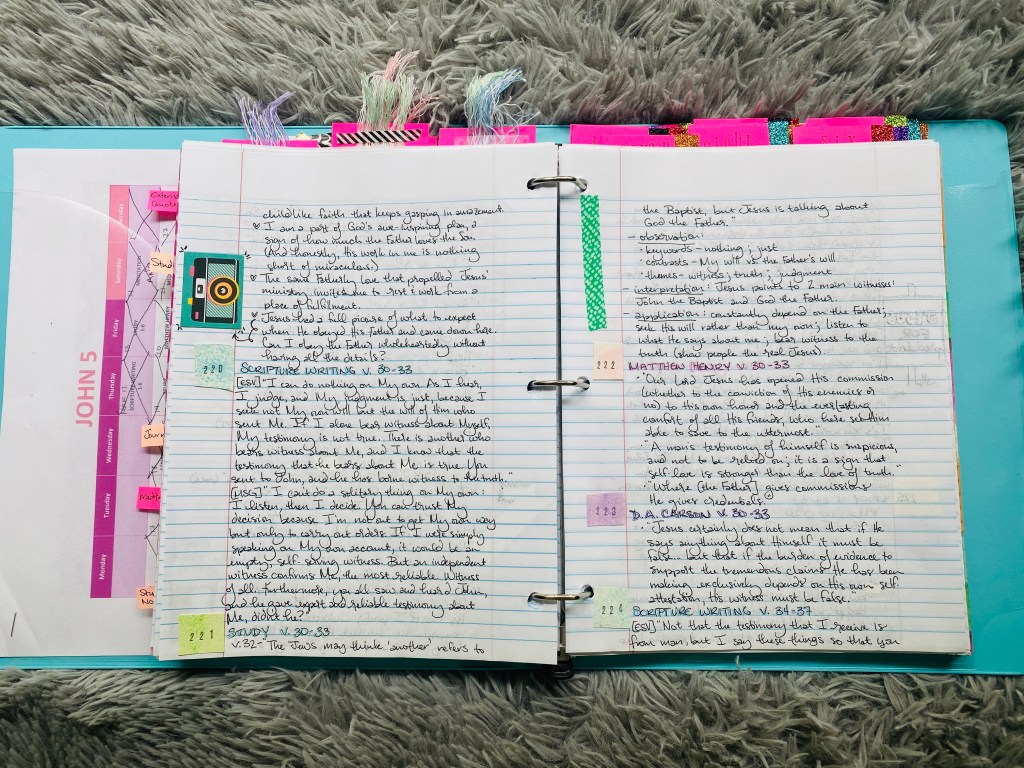 JOHN 5
Monday
Tuesday
Wednesday
Thursday
Friday
Saturday
Sunday
childlike faith that keeps gasping in amazement.
I am a part of God's awe-inspiring play, a
sign of how much the Father loves the Son.
(And honestly, His work in me is nothing
short of miraculous.)
The same Fatherly love that propelled Jesus'
ministry invites me to rest & work from a
place of fulfillment.
Jesus had a full picture of what to expect
when He obeyed His Father and came down here.
Can I obey the Father wholeheartedly without
having all the details?
220
SCRIPTURE WRITING V. 30-33
[ESV] "I can do nothing on My own. As I hear,
I judge, and My judgment is just, because I
seek not My own will but the will of Him who
sent Me. If I alone bear witness about Myself,
My testimony is not true. There is another who
bears witness about Me, and I know that the
testimony that he bears about Me is true. You
sent to John, and he has borne witness to the truth."
[MSG] "I can't do a solitary thing on My own:
I listen, then I decide. You can trust My
decision because I'm not out to get My own way
but only to carry out orders. If I were simply
speaking on My own account, it would be an
empty, self-serving witness. But an independent
witness confirms Me, the most reliable Witness
of all. Furthermore, you all saw and heard John,
and he gave expert and reliable testimony about
Me, didn't he?
221
STUDY V. 30-33
V.32- "The Jews may think 'another' refers to
the Baptist, but Jesus is talking about
God the Father."
- observation:
· keywords - nothing; just
· contrasts - My will vs the Father's will
· themes - witness; truth; judgment
- interpretation: Jesus points to 2 main witnesses:
John the Baptist and God the Father.
- application: constantly depend on the Father;
seek His will rather than my own; listen to
what He says about me; bear witness to the
truth (show people the real Jesus)
222
MATTHEW HENRY V. 30-33
· "Our Lord Jesus has opened His commission
(whether to the conviction of His enemies or
no) to His own honor and the everlasting
comfort of all His friends, who here see Him
able to save to the uttermost."
· "A man's testimony of himself is suspicious,
and not to be relied on; it is a sign that
self-love is stronger than the love of truth."
· "Where [the Father] gives commissions
He gives credentials.
223
D.A. CARSON V. 30-33
· "Jesus certainly does not mean that if He
says anything about Himself it must be
false... but that if the burden of evidence to
support the tremendous claims He has been
making exclusively depends on His own self-
attestation, His witness must be false."
224
SCRIPTURE WRITING V. 34-37
[ESV] "Not that the testimony that I receive is
from man, but I say these things so that you